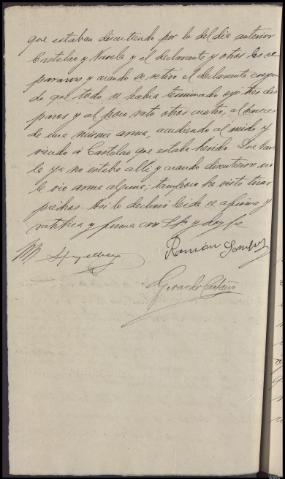 que estaban discutiendo por lo del dia anterior
Castelao y Varela y el declarante y otros los se-
pararon y cuando se retiro el declarante creyen-
do que todo se habia terminado oyo tres dis-
paros y al poco rato otros cuatro, al parecer
de una misma arma, acudiendo al ruido y
viendo á Castelao que estaba herido. Que Vare-
la ya no estaba alli y cuando discutieron no
le vio arma alguna; tampoco ha visto tirar
piedras. Asi lo declaró leida se afirma y
ratifica y firma con S.Sª y doy fe
Ramón
Gerardo